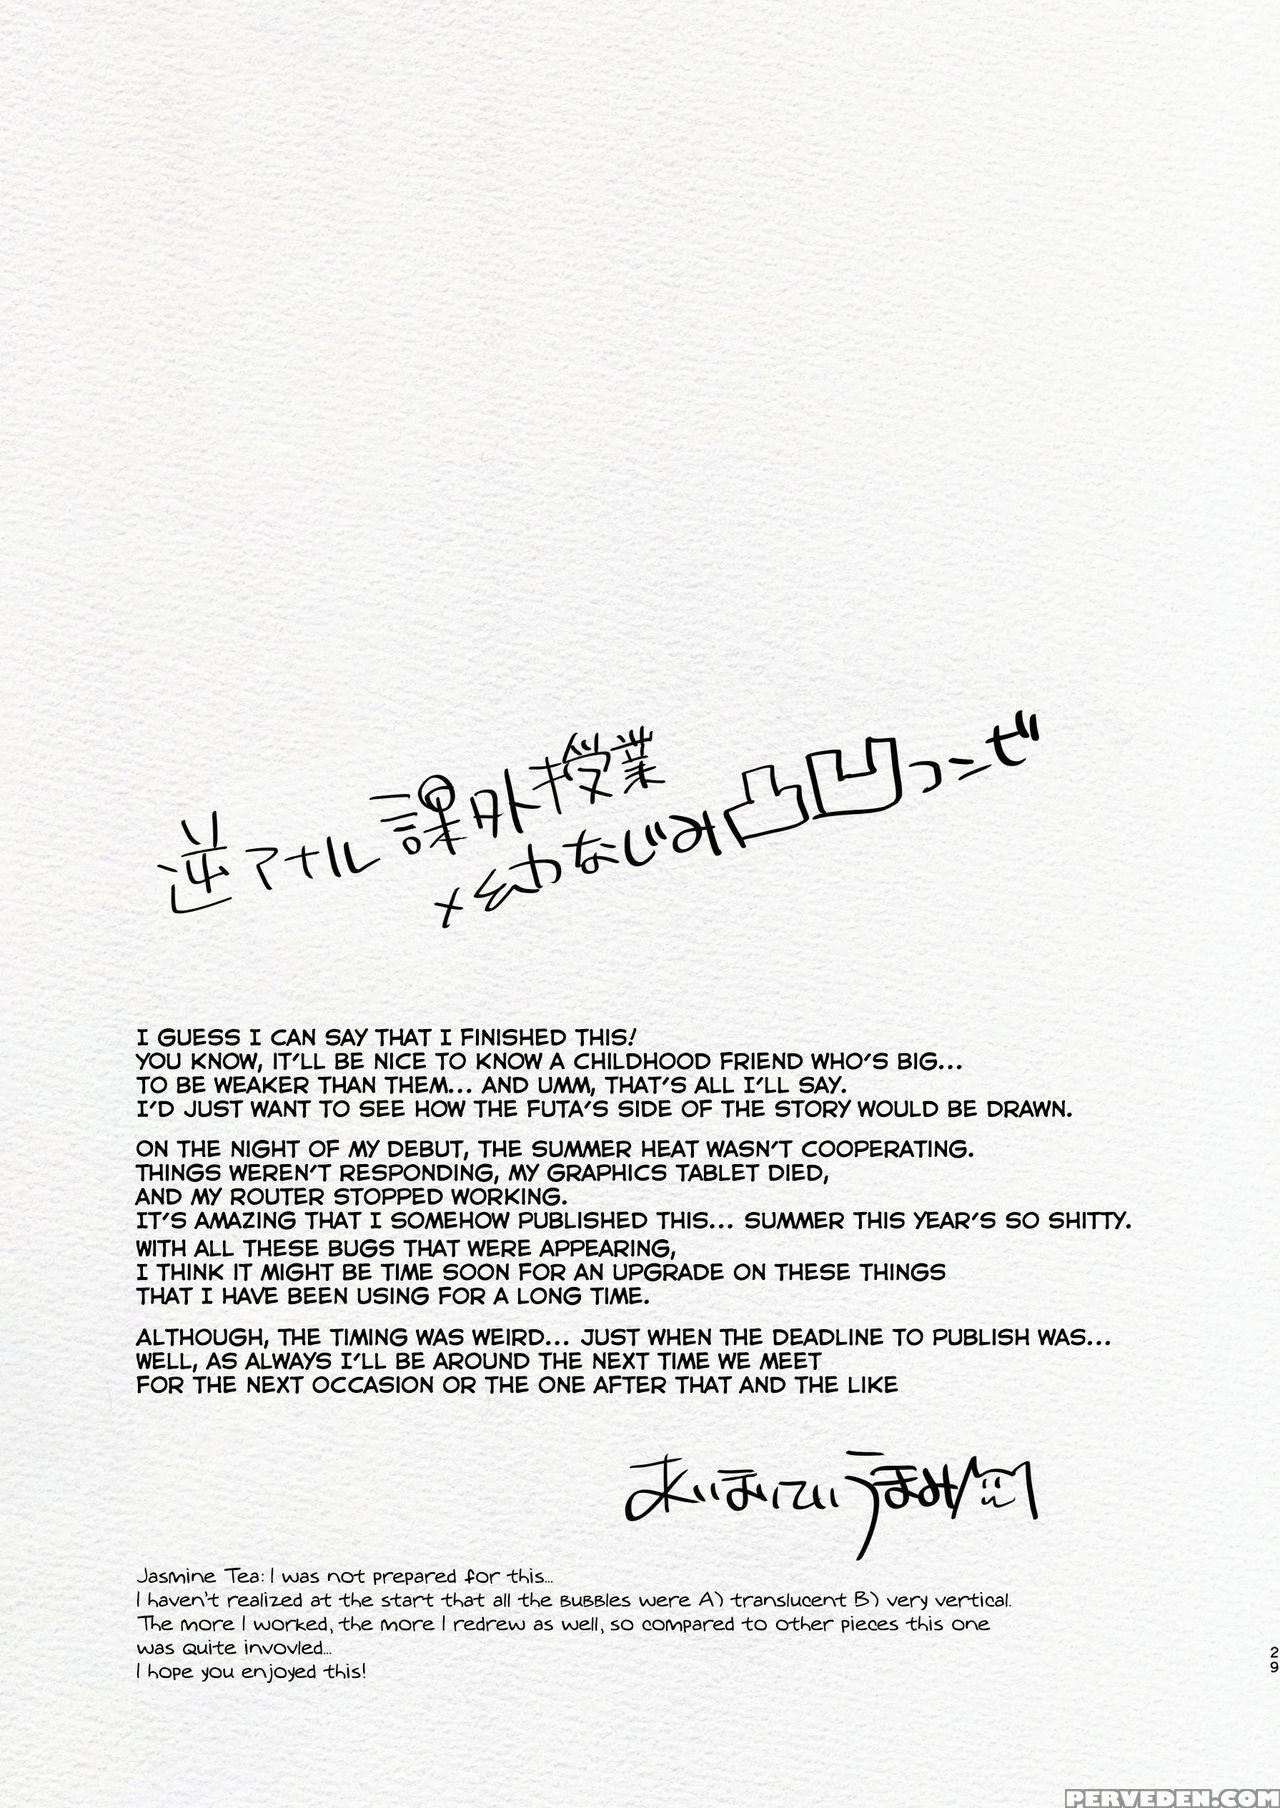 逆アナル課外授業
×幼なじみ凸凹コンビ
I GUESS I CAN SAY THAT I FINISHED THIS!
YOU KNOW, IT'LL BE NICE TO KNOW A CHILDHOOD FRIEND WHO'S BIG...
TO BE WEAKER THAN THEM... AND UMM, THAT'S ALL I'LL SAY.
I'D JUST WANT TO SEE HOW THE FUTA'S SIDE OF THE STORY WOULD BE DRAWN.
ON THE NIGHT OF MY DEBUT, THE SUMMER HEAT WASN'T COOPERATING.
THINGS WEREN'T RESPONDING, MY GRAPHICS TABLET DIED,
AND MY ROUTER STOPPED WORKING.
IT'S AMAZING THAT I SOMEHOW PUBLISHED THIS... SUMMER THIS YEAR'S SO SHITTY.
WITH ALL THESE BUGS THAT WERE APPEARING,
I THINK IT MIGHT BE TIME SOON FOR AN UPGRADE ON THESE THINGS
THAT I HAVE BEEN USING FOR A LONG TIME.
ALTHOUGH, THE TIMING WAS WEIRD... JUST WHEN THE DEADLINE TO PUBLISH WAS...
WELL, AS ALWAYS I'LL BE AROUND THE NEXT TIME WE MEET
FOR THE NEXT OCCASION OR THE ONE AFTER THAT AND THE LIKE
Jasmine Tea: I was not prepared for this...
I haven't realized at the start that all the bubbles were A) translucent B) very vertical.
The more I worked, the more I redrew as well, so compared to other pieces this one
was quite invovled...
I hope you enjoyed this!
29
PERVEDEN.COM